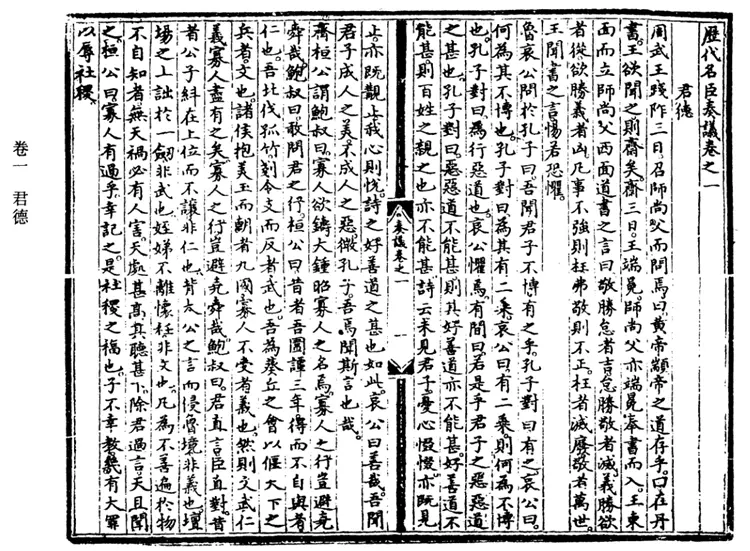 歷代名臣奏議卷之一
君德
周武王踐阼三日召師尚父而問焉曰黃帝顓帝之道存乎曰在丹
書王欲聞之則齋矣齋三日王端冕師尚父亦端冕奉書而入王東
面而立師尚父西面道書之言曰敬勝怠者吉怠勝敬者滅義勝欲
者從欲勝義者凶凡事不強則枉弗敬則不正枉者滅廢敬者萬世
王聞書之言惕若恐懼
魯哀公問於孔子曰吾聞君子不博有之乎孔子對曰有之哀公曰
何為其不博也孔子對曰為其有二乘哀公曰有二乘則何為不博
也孔子對曰為行惡道也哀公懼焉有間曰若是乎君子之惡惡道
之甚也孔子對曰惡惡道不能甚則其好善道亦不能甚好善道不
能甚則百姓之親之也亦不能甚詩云未見君子憂心惙惙亦既見
奏議卷之一 一
止亦既覯止我心則悅詩之好善道之甚也如此哀公曰善哉吾聞
君子成人之美不成人之惡微孔子吾焉聞斯言也哉
齊桓公謂鮑叔曰寡人欲鑄大鐘昭寡人之名焉寡人之行豈避堯
舜哉鮑叔曰敢問君之行桓公曰昔者吾圍譚三年得而不自與者
仁也吾北伐孤竹剗令支而反者武也吾為葵丘之會以偃天下之
兵者文也諸侯抱美玉而朝者九國寡人不受者義也然則文武仁
義寡人盡有之矣寡人之行豈避堯舜哉鮑叔曰君直言臣直對昔
者公子糾在上位而不讓非仁也背太公之言而侵魯境非義也壇
場之上詘於一劍非武也姪娣不離懷衽非文也凡為不善遍於物
不自知者無天禍必有人害天處甚高其聽甚下除君過言天且聞
之桓公曰寡人有過乎幸記之是社稷之福也子不幸教幾有大罪
以辱社稷
卷一 君德